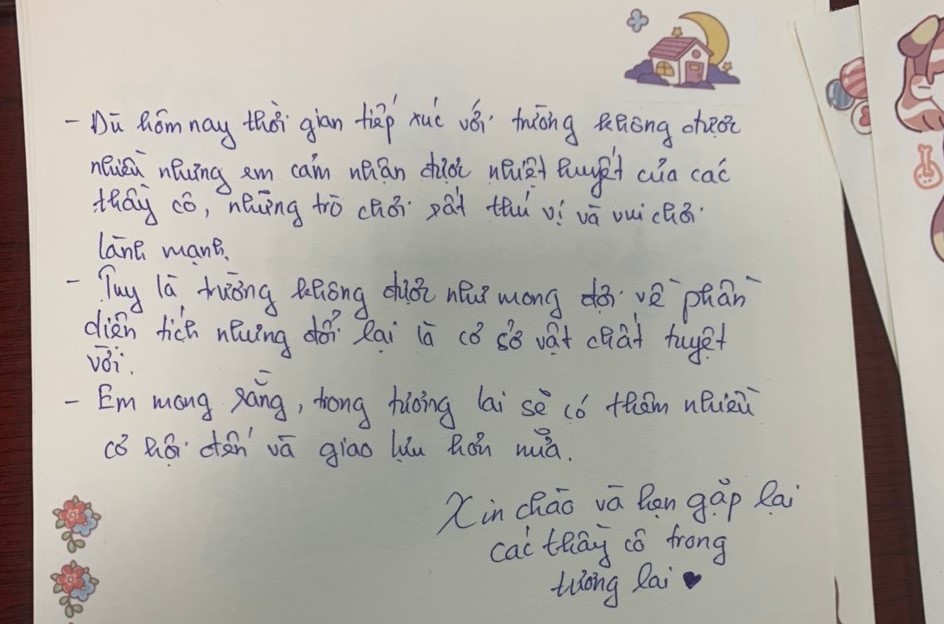 - Dù hôm nay thời gian tiếp xúc với trường không được
nhiều nhưng em cảm nhận được nhiệt huyết của các
thầy cô, những trò chơi rất thú vị và vui chơi
lành mạnh.
- Tuy là trường không được như mong đợi về phần
diện tích nhưng đổi lại là cơ sở vật chất tuyệt
vời.
- Em mong rằng, trong tương lai sẽ có thêm nhiều
cơ hội đến và giao lưu hơn nữa.
Xin chào và hẹn gặp lại
các thầy cô trong
tương lai ♥